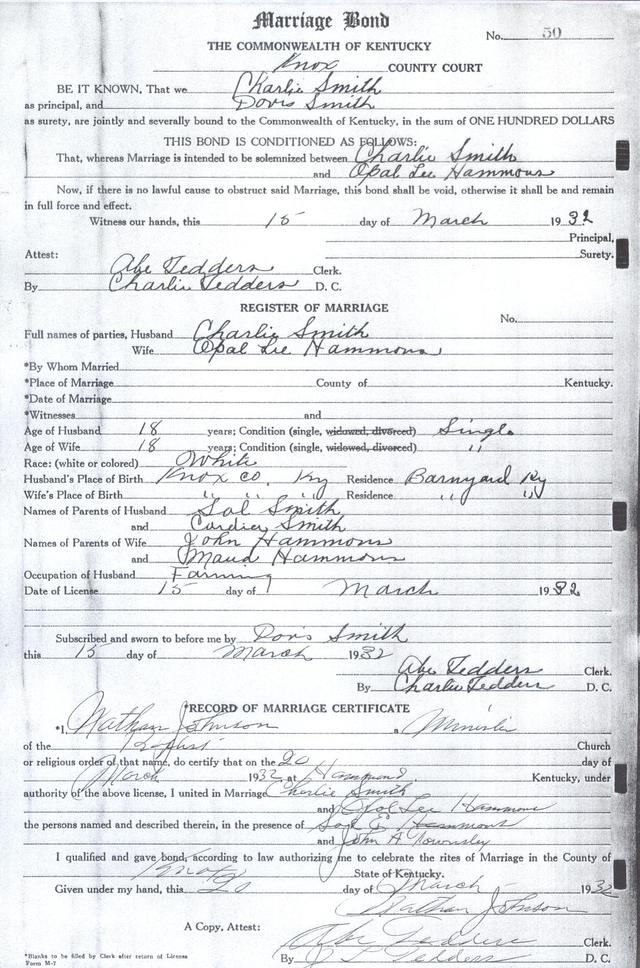 Marriage Bond
No. 50
THE COMMONWEALTH OF KENTUCKY
Knox COUNTY COURT
BE IT KNOWN, That we Charlie Smith
as principal, and Doris Smith
as surety, are jointly and severally bound to the Commonwealth of Kentucky, in the sum of ONE HUNDRED DOLLARS
THIS BOND IS CONDITIONED AS FOLLOWS:
That, whereas Marriage is intended to be solemnized between Charlie Smith
and Opal Lee Hammons
Now, if there is no lawful cause to obstruct said Marriage, this bond shall be void, otherwise it shall be and remain
in full force and effect.
Witness our hands, this 15 day of March 1932
Principal,
Attest: Surety.
Abe Tedders Clerk.
By Charlie Tedders D. C.
REGISTER OF MARRIAGE
No.
Full names of parties, Husband Charlie Smith
Wife Opal Lee Hammons
*By Whom Married
*Place of Marriage County of Kentucky.
*Date of Marriage
*Witnesses and
Age of Husband 18 years; Condition (single, widowed, divorced) Single
Age of Wife 18 years; Condition (single, widowed, divorced) "
Race: (white or colored) White
Husband's Place of Birth Knox Co. Ky Residence Barnyard Ky
Wife's Place of Birth " " " Residence " "
Names of Parents of Husband Sol Smith
and Smith
Names of Parents of Wife John Hammons
and Maud Hammons
Occupation of Husband Farming
Date of License 15 day of March 1932
Subscribed and sworn to before me by Doris Smith
this 15 day of March 1932
Abe Tedders Clerk.
By Charlie Tedders D. C.
RECORD OF MARRIAGE CERTIFICATE
*I, Nathan Johnson a Minister
of the Baptist Church
or religious order of that name, do certify that on the 20 day of
March 1932 at Hammond Kentucky, under
authority of the above license, I united in Marriage Charlie Smith
and Opal Lee Hammons
the persons named and described therein, in the presence of Hammons
and John H
I qualified and gave bond, according to law authorizing me to celebrate the rites of Marriage in the County of
Knox State of Kentucky.
Given under my hand, this 20 day of March 1932
Nathan Johnson
A Copy, Attest:
Abe Tedders Clerk.
By Tedders D. C.
*Blanks to be filled by Clerk after return of License
Form M-7